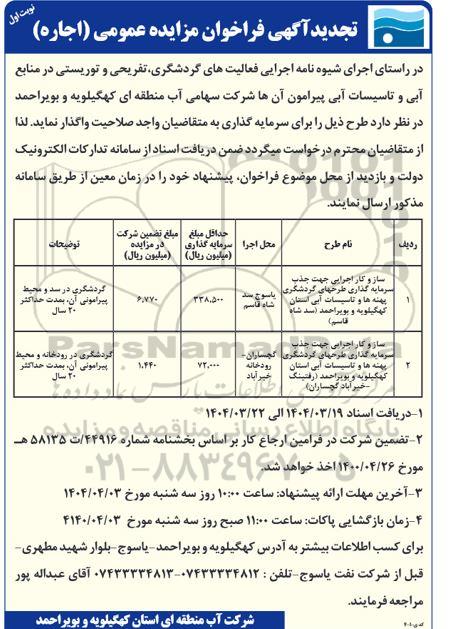 نوبت اول
تجدیدآگهی فراخوان مزایده عمومی (اجاره)
در راستای اجرای شیوه نامه اجرایی فعالیت های گردشگری، تفریحی و توریستی در منابع
آبی و تاسیسات آبی پیرامون آن ها شرکت سهامی آب منطقه ای کهگیلویه و بویراحمد
در نظر دارد طرح ذیل را برای سرمایه گذاری به متقاضیان واجد صلاحیت واگذار نماید. لذا
از متقاضیان محترم درخواست میگردد ضمن دریافت اسناد از سامانه تدارکات الکترونیک
دولت و بازدید از محل موضوع فراخوان، پیشنهاد خود را در زمان معین از طریق سامانه
مذکور ارسال نمایند.
ردیف | نام طرح | محل اجرا | حداقل مبلغ سرمایه گذاری (میلیون ریال) | مبلغ تضمین شرکت در مزایده (میلیون ریال) | توضیحات
۱ | ساز و کار اجرایی جهت جذب سرمایه گذاری طرحهای گردشگری پهنه ها و تاسیسات آبی استان کهگیلویه و بویراحمد (سد شاه قاسم) | یاسوج سد شاه قاسم | ۳۳۸،۵۰۰ | ۶،۷۷۰ | گردشگری در سد و محیط پیرامونی آن، بمدت حداکثر ۲۰ سال
۲ | ساز و کار اجرایی جهت جذب سرمایه گذاری طرحهای گردشگری پهنه ها و تاسیسات آبی استان کهگیلویه و بویراحمد (رفتینگ -خیرآباد گچساران) | گچساران- رودخانه خیرآباد | ۷۲،۰۰۰ | ۱،۴۴۰ | گردشگری در رودخانه و محیط پیرامونی آن، بمدت حداکثر ۲۰ سال
۱-دریافت اسناد ۱۴۰۴/۰۳/۱۹ الی ۱۴۰۴/۰۳/۲۲
۲-تضمین شرکت در فرامین ارجاع کار بر اساس بخشنامه شماره ۴۴۹۱۶/ت ۵۸۱۳۵ هـ
مورخ ۱۴۰۰/۰۴/۲۶ اخذ خواهد شد.
۳-آخرین مهلت ارائه پیشنهاد: ساعت ۱۰:۰۰ روز سه شنبه مورخ ۱۴۰۴/۰۴/۰۳
۴-زمان بازگشایی پاکات: ساعت ۱۱:۰۰ صبح روز سه شنبه مورخ ۴۱۴۰/۰۴/۰۳
برای کسب اطلاعات بیشتر به آدرس کهگیلویه و بویراحمد-یاسوج-بلوار شهید مطهری-
قبل از شرکت نفت یاسوج-تلفن : ۰۷۴۳۳۳۳۴۸۱۲-۰۷۴۳۳۳۳۴۸۱۳ آقای عبداله پور
مراجعه فرمایند.
شرکت آب منطقه ای استان کهگیلویه و بویراحمد
ParsNamadData
پایگاه اطلاع رسانی مناقصه و مزایده